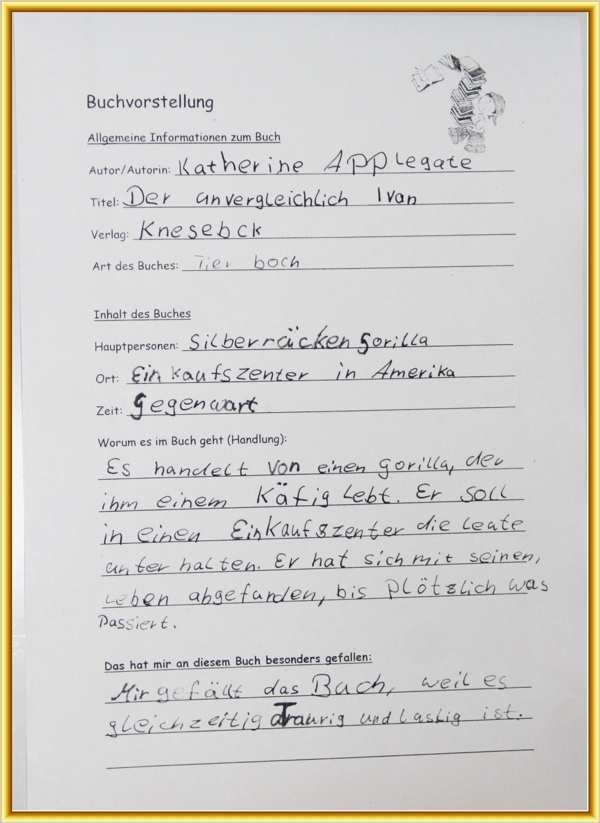 Buchvorstellung
Allgemeine Informationen zum Buch
Autor/Autorin: Katherine Applegate
Titel: Der unvergleichlich Ivan
Verlag: Knesebck
Art des Buches: Tier boch
Inhalt des Buches
Hauptpersonen: Silberräcken gorilla
Ort: Einkaufszenter in Amerika
Zeit: gegenwart
Worum es im Buch geht (Handlung):
Es handelt von einen gorilla, der
ihm einem Käfig lebt. Er soll
in einen Einkaufszenter die leute
unter halten. Er hat sich mit seinen,
Leben abgefunden, bis plötzlich was
Passiert.
Das hat mir an diesem Buch besonders gefallen:
Mir gefällt das Buch, weil es
gleichzeitig Traurig und lustig ist.